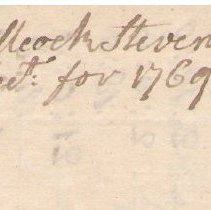 llcock Steven
ct: for 1769